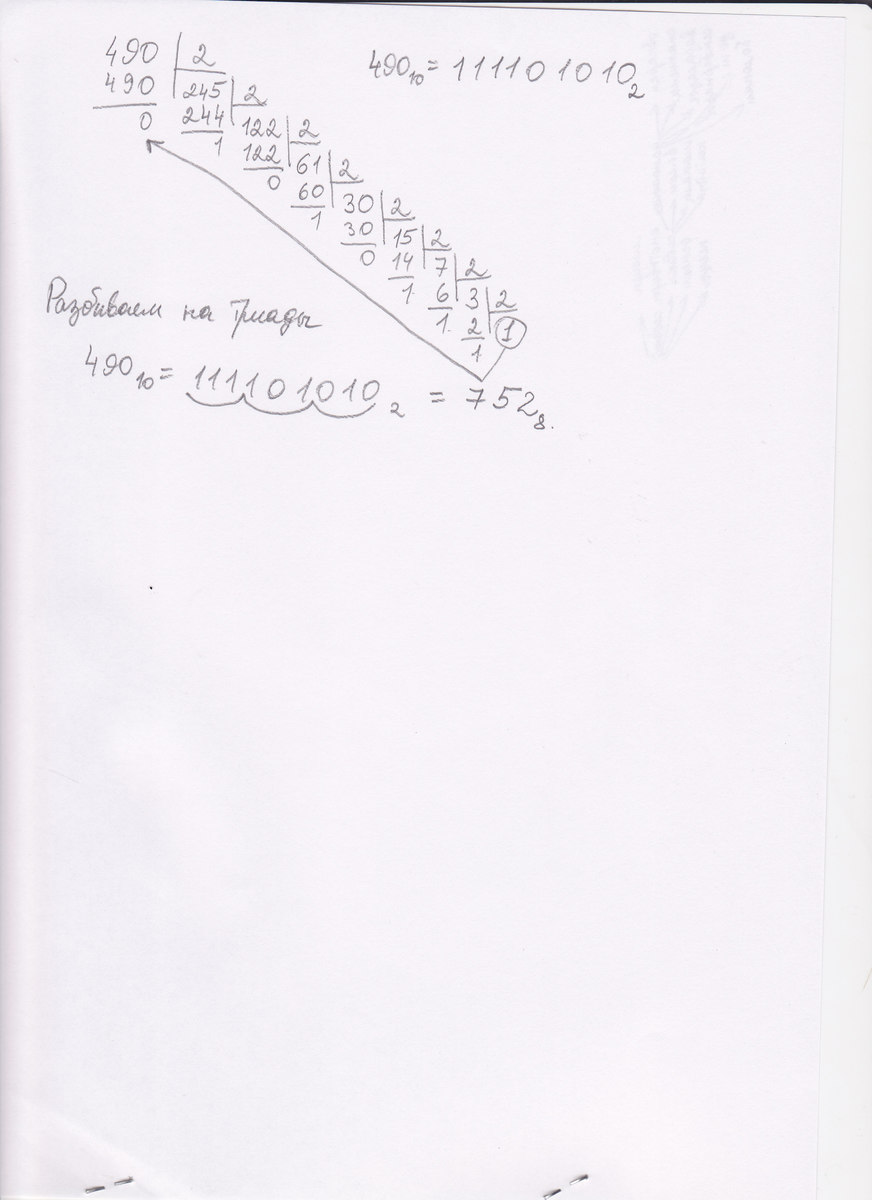 490 | 2 490₁₀ = 111101010₂
490 | 245 | 2
0 244 | 122 | 2
1 122 | 61 | 2
0 60 | 30 | 2
1 30 | 15 | 2
0 14 | 7 | 2
1 6 | 3 | 2
1 2 | 1
1
Разбиваем на триады
490₁₀ = 111101010₂ = 752₈.